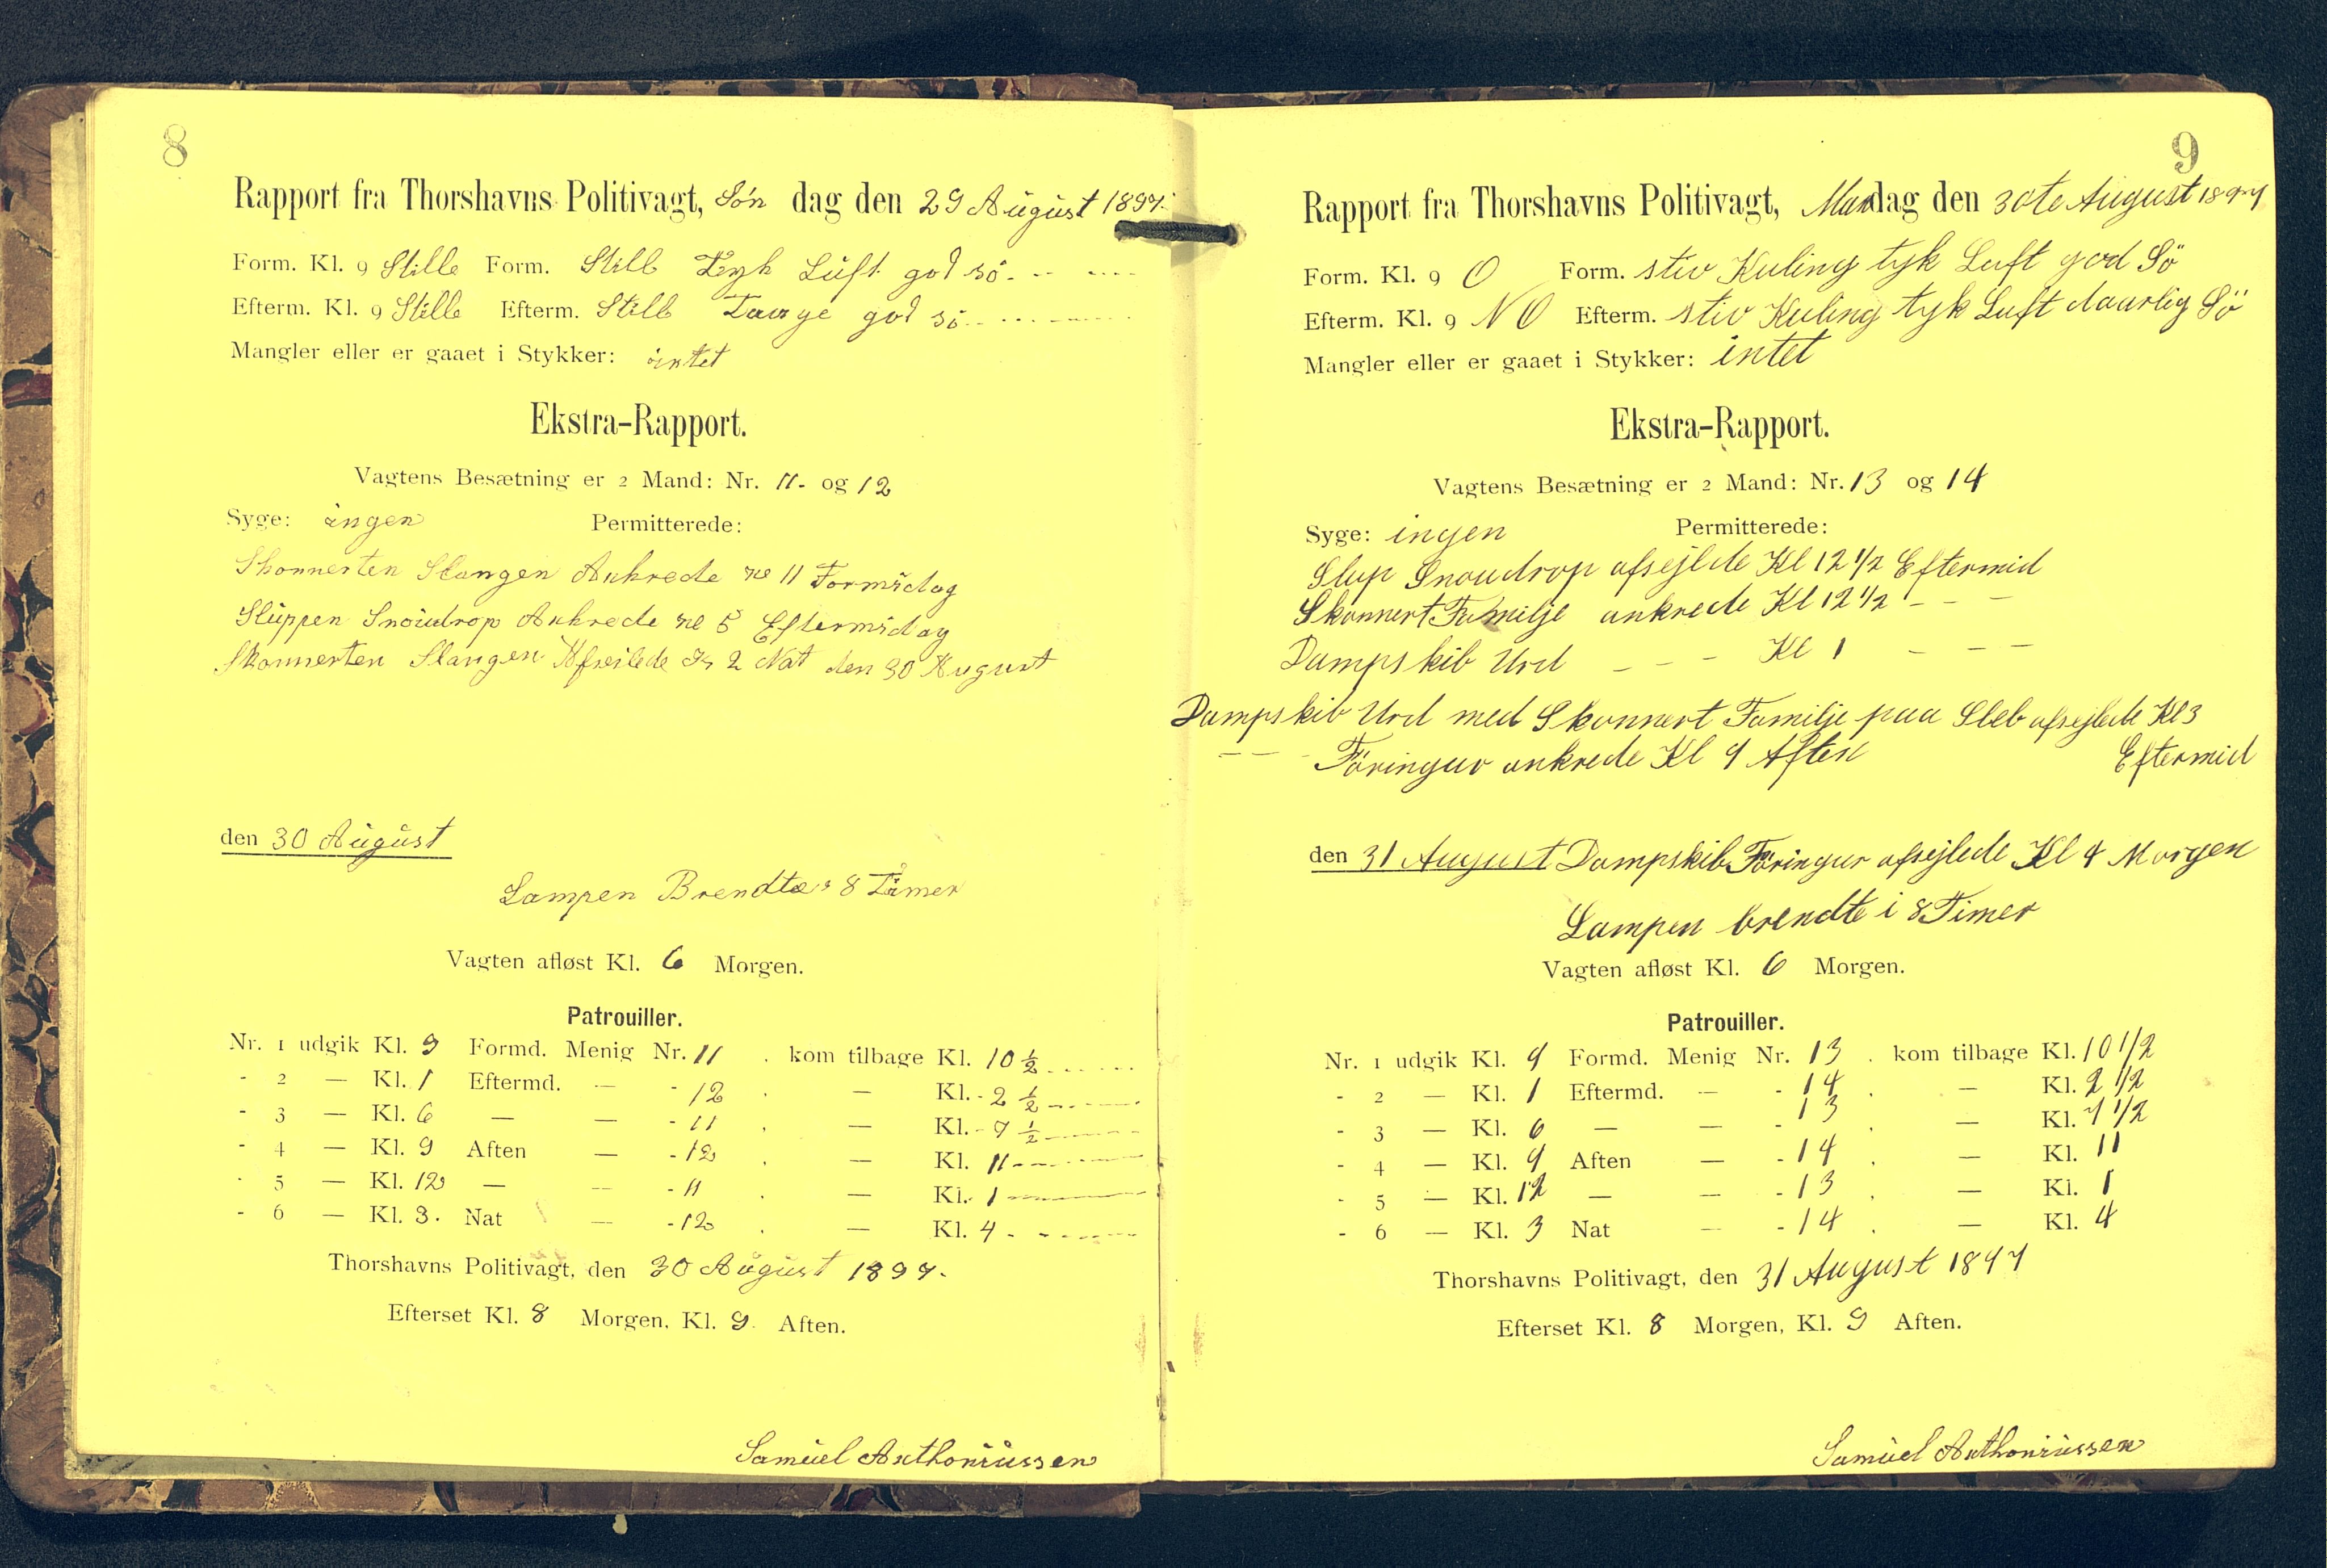 8
Rapport fra Thorshavns Politivagt, Søn dag den 29 August 1897.
Form. Kl. 9 Stille Form. Still Tyk Luft god sö
Efterm. Kl. 9 Stille Efterm. Still Taage god sö
Mangler eller er gaaet i Stykker: intet
Ekstra-Rapport.
Vagtens Besætning er 2 Mand: Nr. 11 og 12
Syge: ingen Permitterede:
Skonnerten Slangen Ankrede 11 Formidag
Sluppen Snoudrop Ankrede 5 Eftermidag
Skonnerten Slangen Afseilede 2 Nat den 30 August
den 30 August
Lampen Brendte 8 Timer
Vagten afløst Kl. 6 Morgen.
Patrouiller.
Nr. 1 udgik Kl. 9 Formd. Menig Nr. 11 . kom tilbage Kl. 10 1/2
- 2 — Kl. 1 Eftermd. — - 12 . — Kl. 2 1/2
- 3 — Kl. 6 — — - 11 . — Kl. 7 1/2
- 4 — Kl. 9 Aften — - 12 . — Kl. 11
- 5 — Kl. 12 — — - 11 . — Kl. 1
- 6 — Kl. 3. Nat — - 12 . — Kl. 4
Thorshavns Politivagt, den 30 August 1897.
Efterset Kl. 8 Morgen, Kl. 9. Aften.
Samuel Anthoniussen
9
Rapport fra Thorshavns Politivagt, Mandag den 30te August 1897
Form. Kl. 9 O Form. stiv Kuling tyk Luft god Sö
Efterm. Kl. 9 NO Efterm. stiv Kuling tyk Luft daarlig Sö
Mangler eller er gaaet i Stykker: intet
Ekstra-Rapport.
Vagtens Besætning er 2 Mand: Nr. 13 og 14
Syge: ingen Permitterede:
Slup Snoudrop afsejlde Kl 12 1/2 Eftermid
Skonnert Familje ankrede Kl 12 1/2 - - -
Dampskib Urd - - - Kl 1 - - -
Dampskib Urd med Skonnert Familje paa Sleb afsejlede Kl 3
Eftermid
- - - Föringur ankrede Kl 9 Aften
den 31 August Dampskib Föringur afsejlede Kl 4 Morgen
Lampen brendte i 8 Timer
Vagten afløst Kl. 6 Morgen.
Patrouiller.
Nr. 1 udgik Kl. 9 Formd. Menig Nr. 13 . kom tilbage Kl. 10 1/2
- 2 — Kl. 1 Eftermd. — - 14 . — Kl. 2 1/2
- 3 — Kl. 6 — — - 13 . — Kl. 7 1/2
- 4 — Kl. 9 Aften — - 14 . — Kl. 11
- 5 — Kl. 12 — — - 13 . — Kl. 1
- 6 — Kl. 3 Nat — - 14 . — Kl. 4
Thorshavns Politivagt, den 31 August 1897
Efterset Kl. 8 Morgen, Kl. 9 Aften.
Samuel Anthoniussen